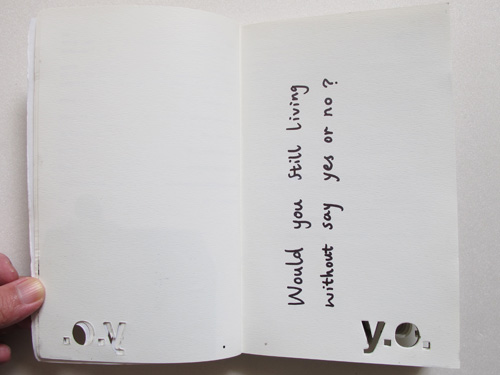 Would you still living
without say yes or no?
y.o.
y.o.